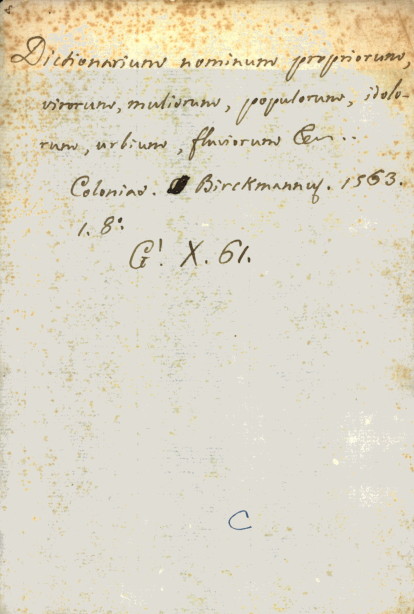 Dictionarium nominum propriorum,
virorum, mulierum, populorum, idolo-
rum, urbium, fluviorum &c..
Coloniae. Birckmannus. 1563.
1. 8°.
G'. X. 61.
C